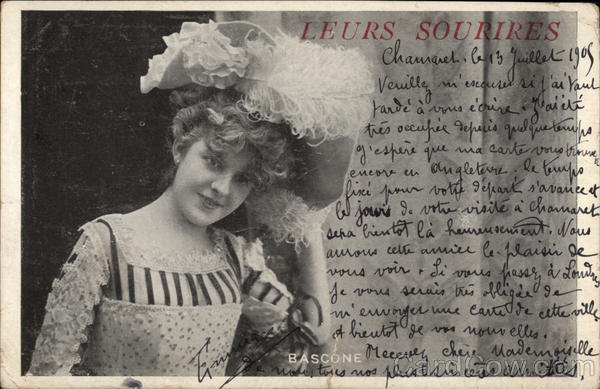 LEURS SOURIRES
Chamaret, le 13 Juillet 1905
Veuillez m'excuser si j'ai tant
tardé à vous écrire. J'ai été
très occupée depuis quelque temps
J'espère que ma carte vous trouvera
encore en Angleterre. le temps
fixé pour votre départ s'avance et
le jour de votre visite à Chamaret
sera bientôt là heureusement. Nous
aurons cette année le plaisir de
vous voir. Si vous passez à Londres
je vous serais très obligée de
m'envoyer une carte de cette ville
et bientôt de vos nouvelles.
Recevez, chère Mademoiselle
de nous tous nos plus
BASCÔNE
CardCow.com